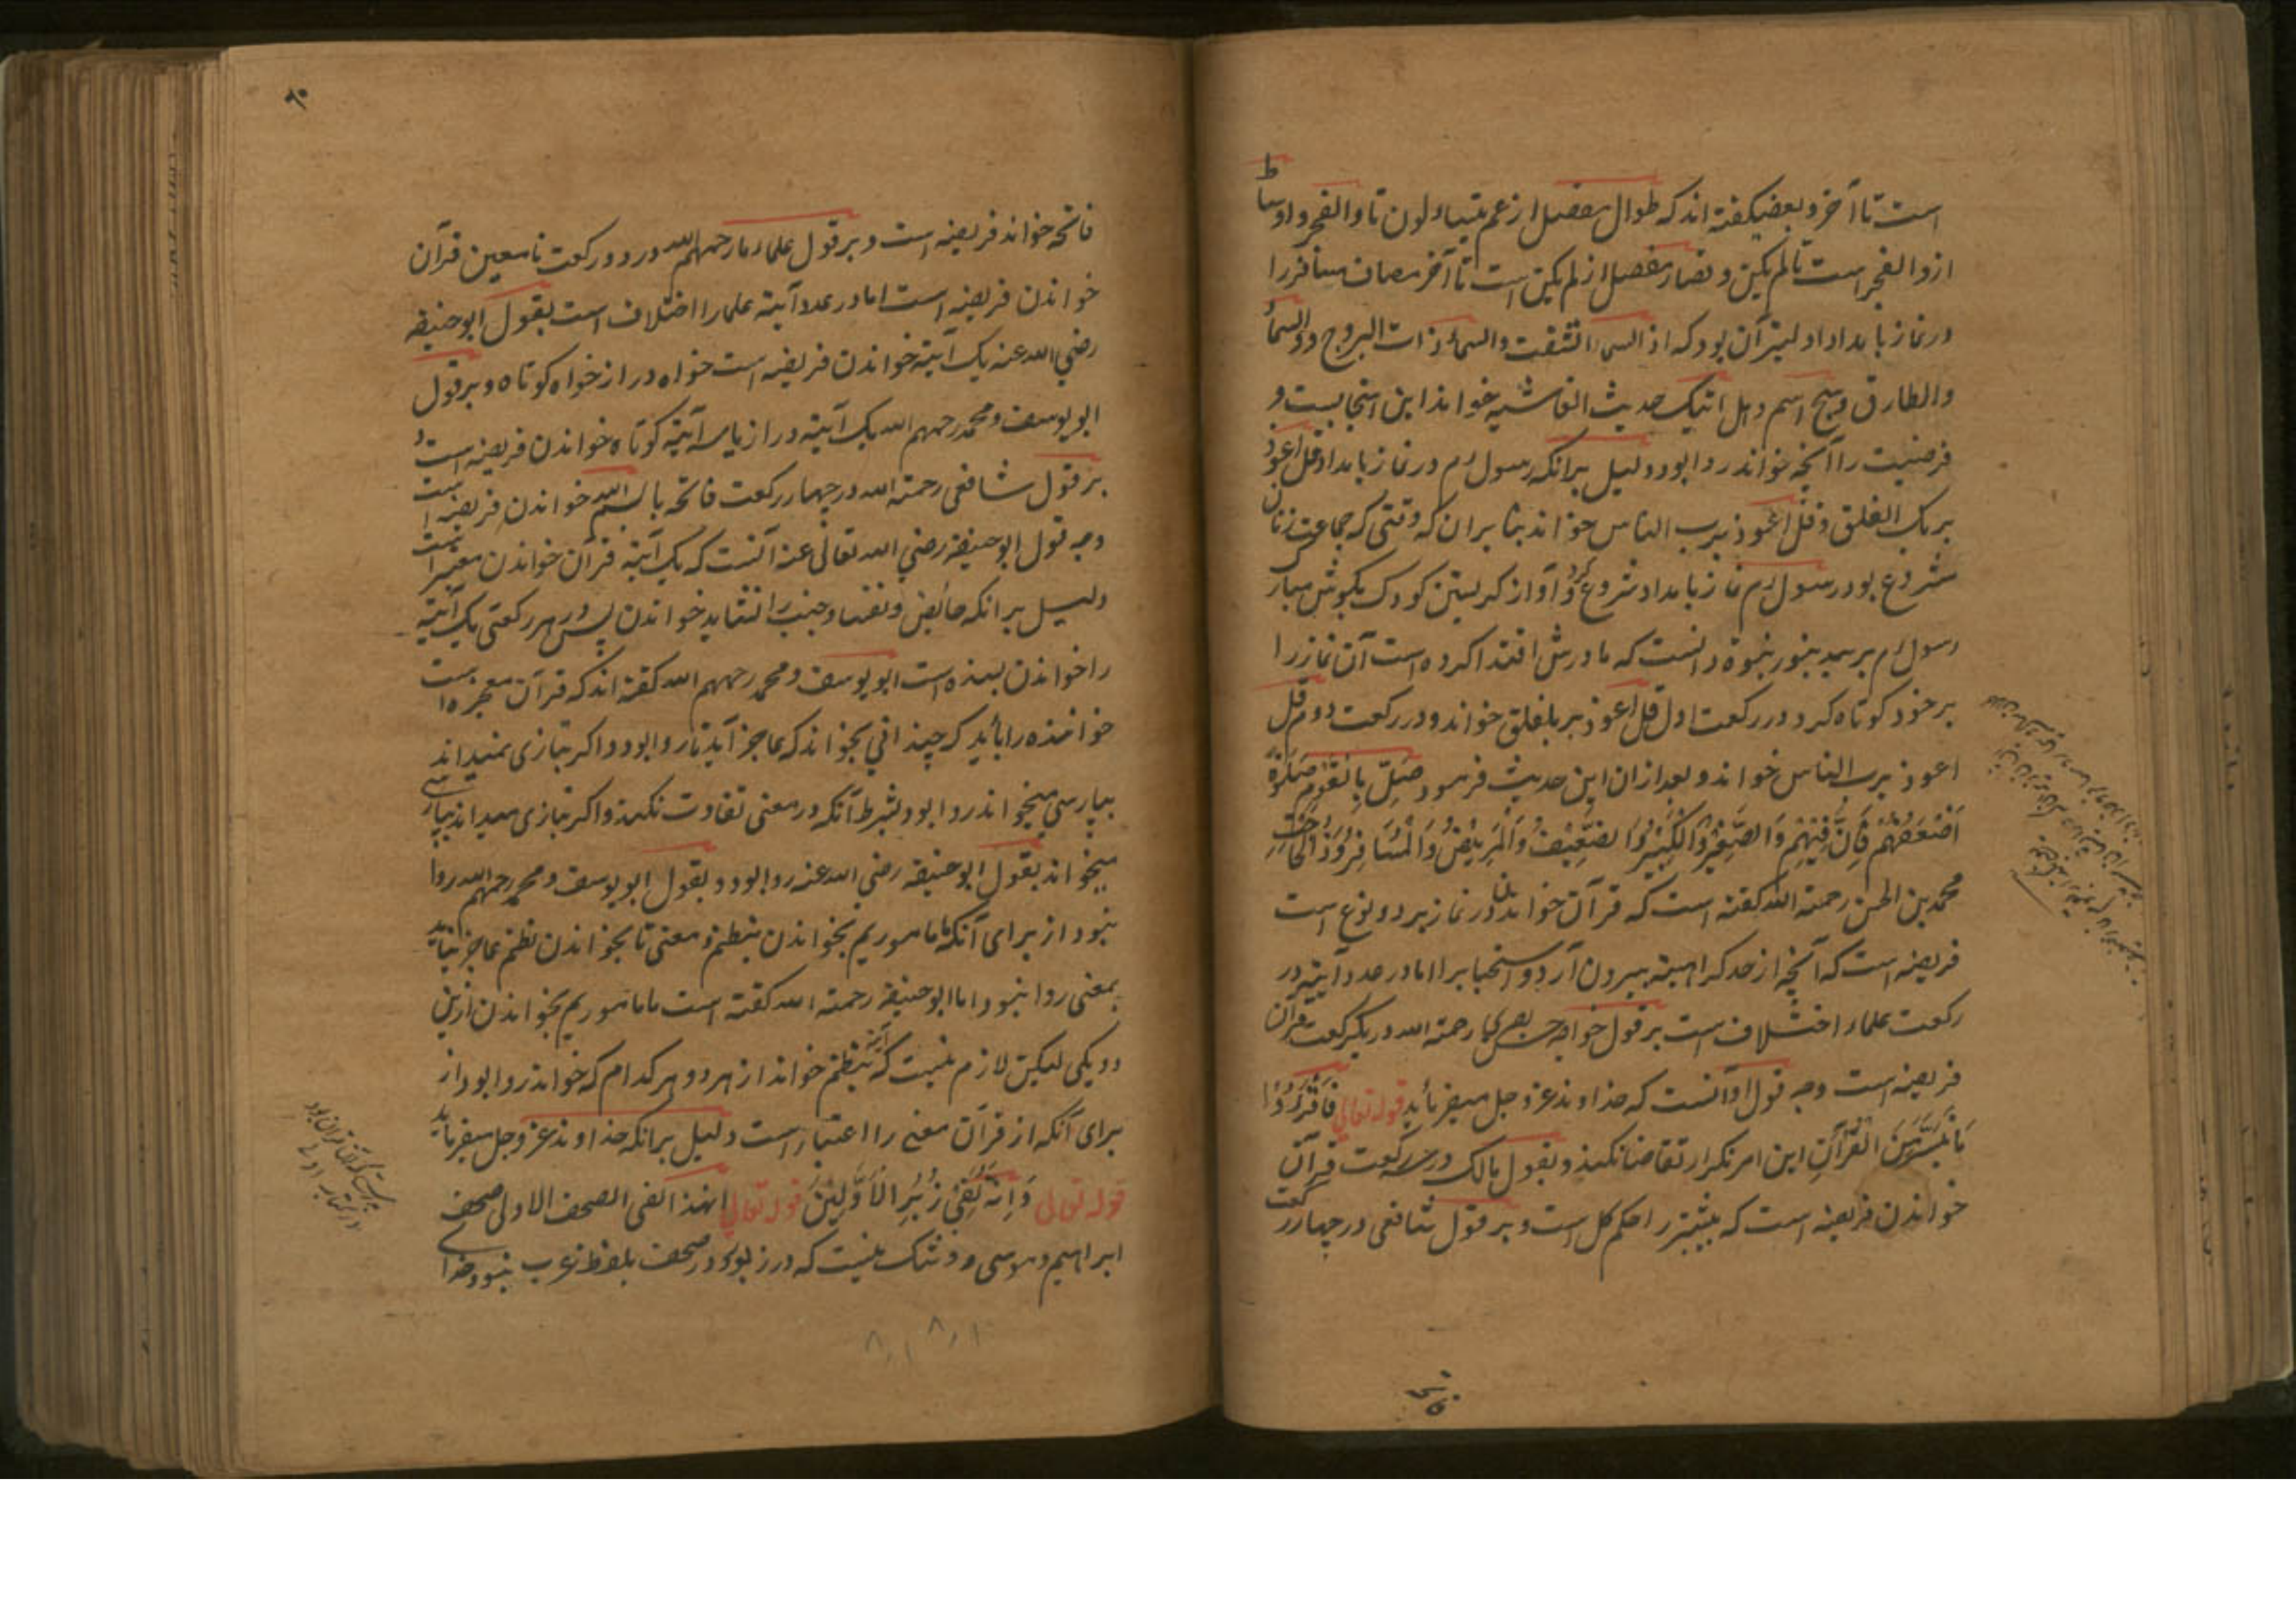 است تا آخر و بعضی گفته اند که طوال مفصل از عم یتساءلون تا والفجر و اوساط
از والفجر است تا لم یکن و قصار مفصل از لم یکن است تا آخر مسافر را
در نماز بامداد اولیتر آن بود که اذا السماء انشقت والسماء ذات البروج و والسماء
والطارق و سبح اسم و هل اتیک حدیث الغاشیه خواند این استحبابست و
فرضیت را آنچه بخواند روا بود و دلیل برانکه رسول م در نماز بامداد قل اعوذ
برب الفلق و قل اعوذ برب الناس خواند بنا بران که وقتی که جماعت زنان
مشروع بود رسول م نماز بامداد شروع کرد و آواز گریستن کودک بگوش مبارک
رسول م برسید بنور نبوة دانست که مادرش اقتدا کرده است آن نماز را
بر خود کوتاه کرد و در رکعت اول قل اعوذ برب الفلق خواند و در رکعت دوم قل
اعوذ برب الناس خواند و بعد ازان این حدیث فرمود صَلِّ بِالقَوْمِ صَلوةَ
اَضْعَفُهُمْ فَاِنَّ فِیْهِمْ وَالصَّغِیْرُ وَالکَبِیْرُ وَالضَّعِیْفُ وَالْمَرِیْضُ وَالْمُسَافِرُ وَذَا الْحَاجَتِ
محمد بن الحسن رحمة الله گفته است که قرآن خواندن در نماز بر دو نوع است
فریضه است که آنچه از حد کراهیته بیرون آرد و استحباب را اما در عدد آیته در
رکعت علماء اختلاف است بر قول خواجه حسن بصری رحمة الله در یک رکعت قرآن
فریضه است وجه قول او آنست که خداوند عز و جل میفرماید قوله تعالی فَاقْرَؤُا
مَا تَیَسَّرَ مِنَ القُرْآنِ این امر تکرار تقاضا نکند و بقول مالک در سه رکعت قرآن
خواندن فریضه است که بیشتر را حکم کل است و بر قول شافعی در چهار رکعت
فاتحه
۶۰
فاتحه خواند فریضه است و بر قول علماء ما رحمهم الله در دو رکعت نامعین قرآن
خواندن فریضه است اما در عدد آیته علما را اختلاف است بقول ابوحنیفه
رضی الله عنه یک آیته خواندن فریضه است خواه دراز خواه کوتاه و بر قول
ابو یوسف و محمد رحمهم الله یک آیته دراز یا سه آیته کوتاه خواندن فریضه است و
بر قول شافعی رحمة الله در چهار رکعت فاتحه با بسم الله خواندن فریضه است
وجه قول ابوحنیفه رضی الله تعالی عنه آنست که یک آیته قرآن خواندن معتبر است
دلیل برانکه حائض و نفسا و جنب را نشاید خواندن پس در هر رکعتی یک آیته
را خواندن بسنده است ابو یوسف و محمد رحمهم الله گفته اند که قرآن معجزه است
خواننده را باید که چندانی بخواند که عاجز آید تا روا بود و اگر تازی نمیداند
بپارسی میخواند روا بود بشرط آنکه در معنی تفاوت نکند و اگر تازی میداند بپارسی
میخواند بقول ابوحنیفه رضی الله عنه روا بود و بقول ابو یوسف و محمد رحمهم الله روا
نبود از برای آنکه ما ماموریم بخواندن بنظم و معنی تا بخواندن نظم عاجز نیاید
بمعنی روا نبود اما ابوحنیفه رحمة الله گفته است ما ماموریم بخواندن ازین
دو یکی لیکن لازم نیست که بنظم خواند از هر دو هر کدام که خواند روا بود از
برای آنکه از قرآن معنی را اعتبار است دلیل برانکه خداوند عز و جل میفرماید
قوله تعالی وَاِنَّهُ لَفِیْ زُبُرِ الْاَوَّلِیْنَ قوله تعالی ان هذا لفی الصحف الاولی صحف
ابراهیم و موسی و شک نیست که در زبور و در صحف بلفظ عرب نبود